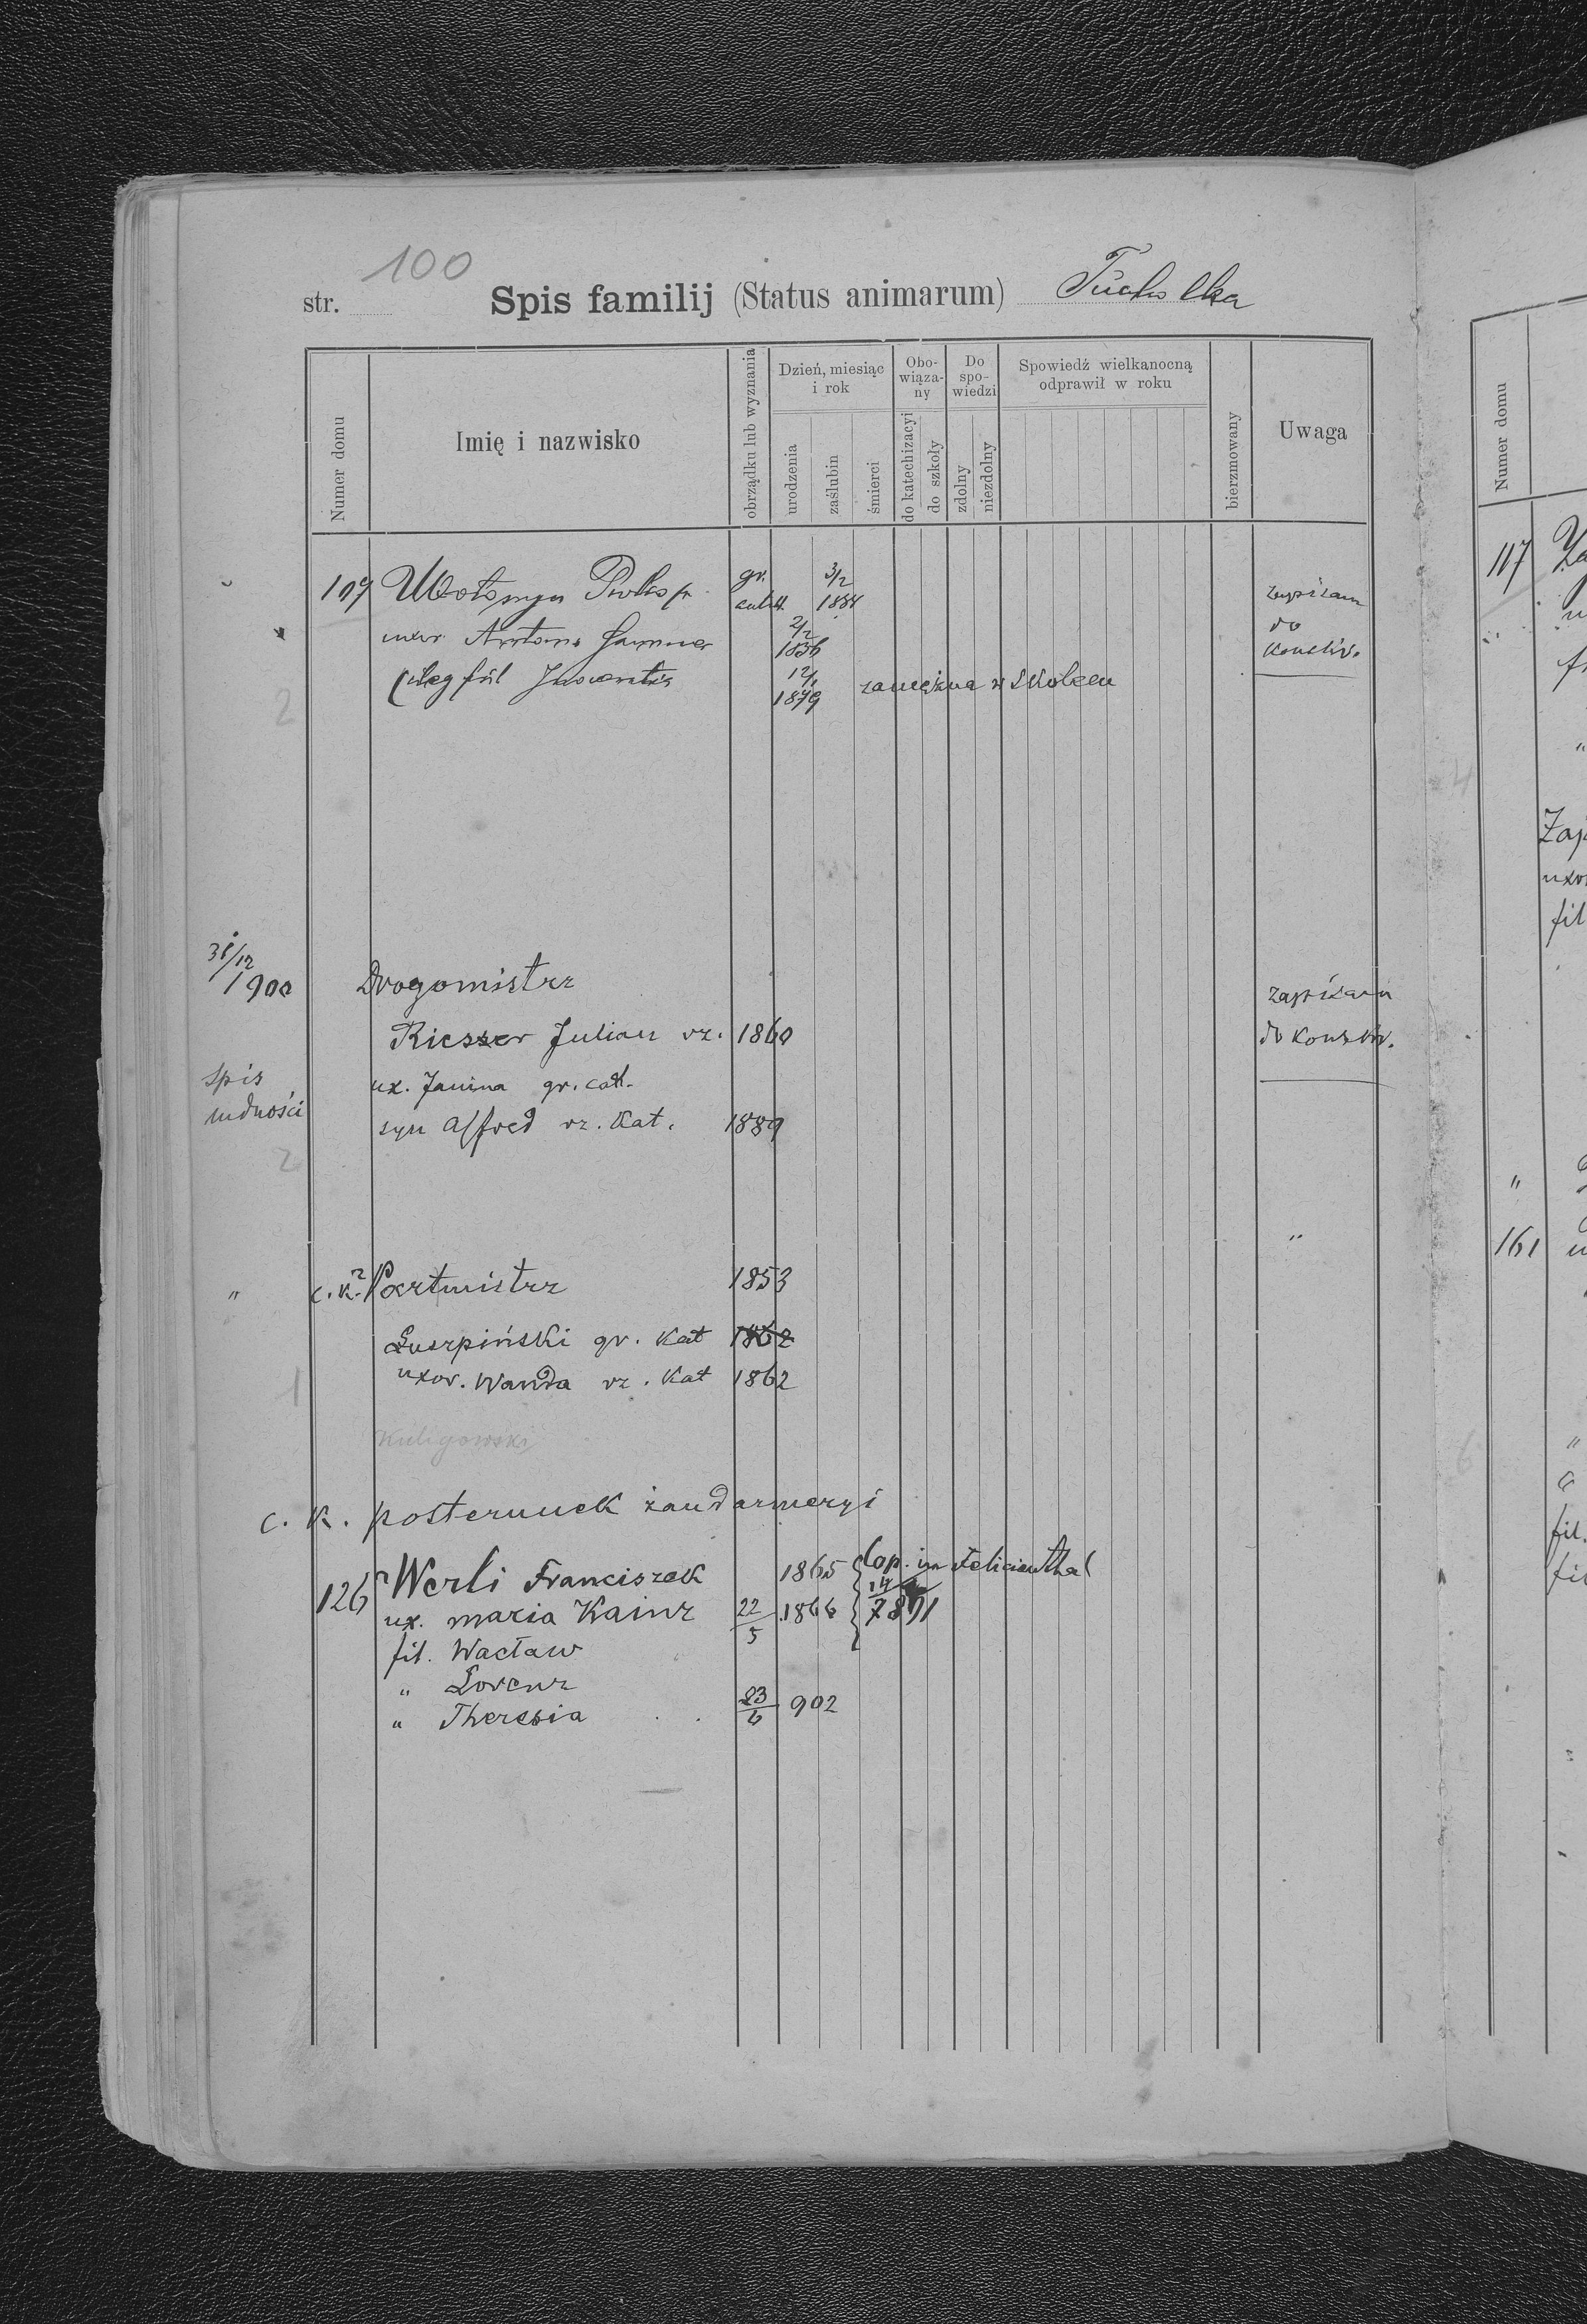 100
str.
Spis familij (Status animarum) Tucholka
Numer domu
Imię i nazwisko
obrządku lub wyznania
Dzień, miesiąc i rok
urodzenia
zaślubin
śmierci
Obowiązany
do katechizacyi
do szkoły
Do spowiedzi
zdolny
niezdolny
Spowiedź wielkanocną odprawił w roku
bierzmowany
Uwaga
107 Prokop gr. 3/2
cath. 188
uxor Antonina 2/2
1836
fil 12/
1879 zamężna w Skolem
zapisani
do
konskr.
2
31/12
1900
Drogomistrz
zapisani
Riesser Julian rz. 1860
do konskr.
spis
ludności
ux. Janina gr. cath.
syn Alfred rz. Kat. 1889
2
" c.k. Portmistrz 1853 "
gr. Kat 1862
uxor. Wanda rz. Kat 1862
1
Kuligowski
c. k. posterunek żandarmeryi
126 Werli Franciszek 1865 Cop. in Felicienthal
ux. Maria Kainz 22/5 1866 14/7 891
fil. Wacław
" Lorenz
" Theresia 23/6 902
Numer domu
117 Za
4
Zap
uxor
fil
"
161
6
"
fil.